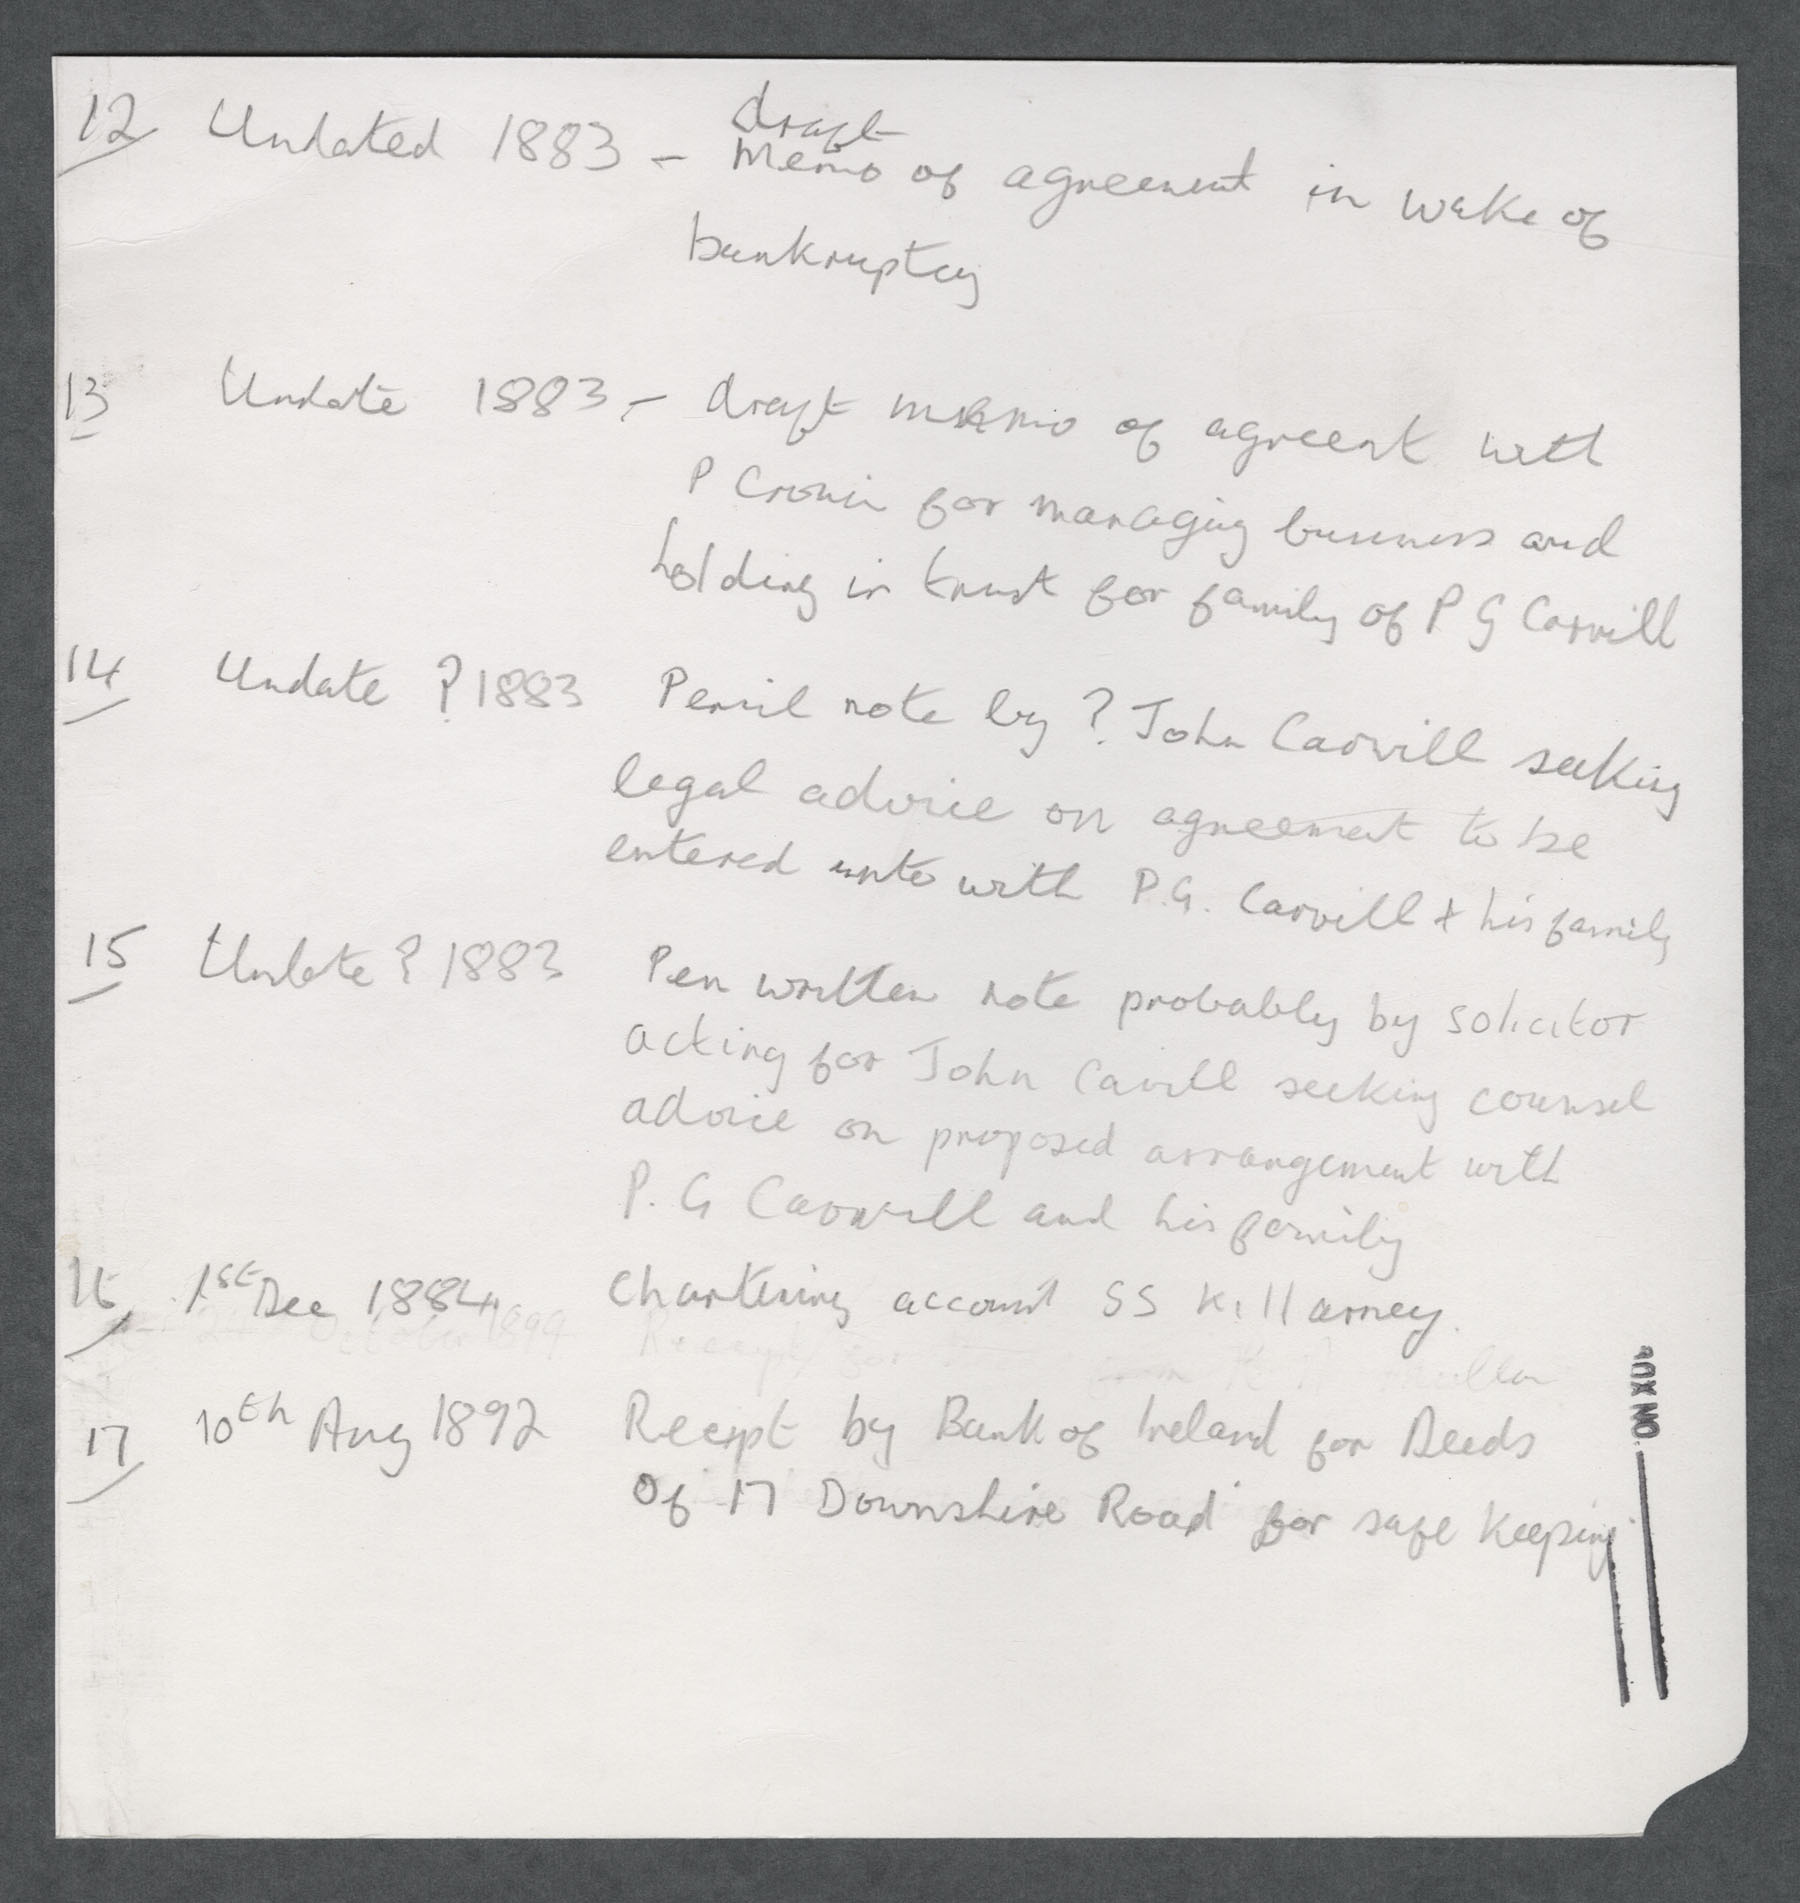 draft
12 Undated 1883 - Memo of agreement in wake of
bankruptcy
13 Undate 1883 - draft memo of agreent with
P Cronin for managing business and
holding in trust for family of P G Carvill
14 Undate ? 1883 Pencil note by ? John Carvill seeking
legal advice on agreement to be
entered unto with P.G. Carvill + his family
15 Undate ? 1883 Pen written note probably by solicitor
acting for John Cavill seeking counsel
advice on proposed arrangement with
P. G Carvill and his family
16 1st Dec 1884 Chartering account SS Killarney.
October 1899 Receipt for
17 10th Aug 1892 Receipt by Bank of Ireland for Deeds
of 17 Downshire Road for safe keeping
BOX NO.